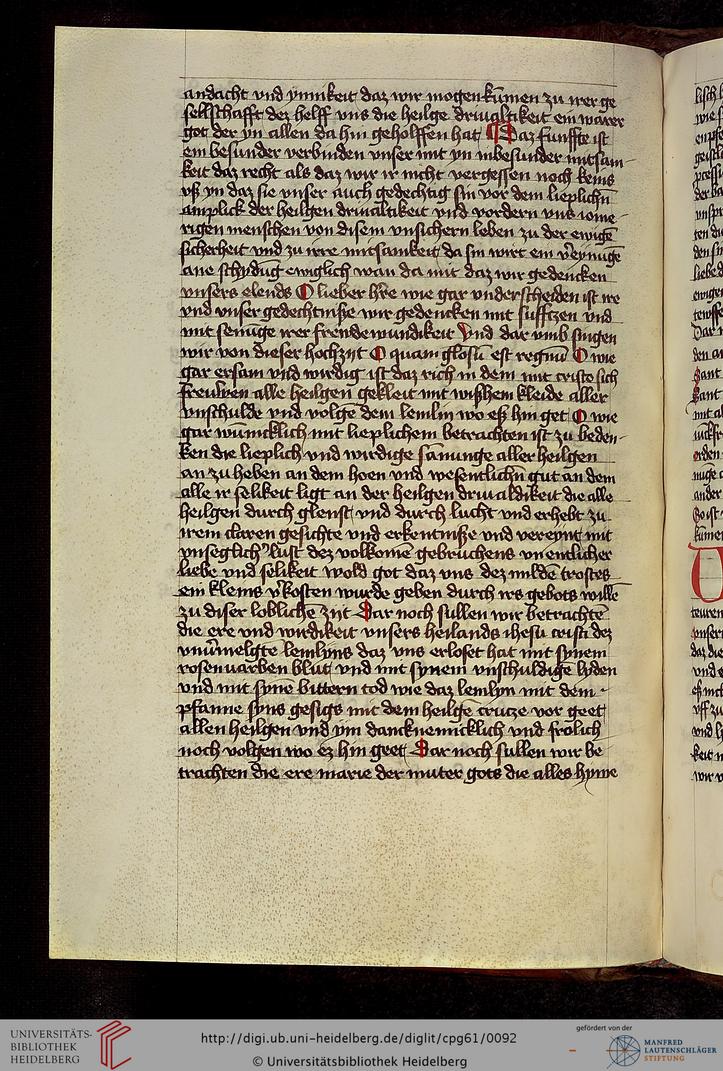 andacht vnd ynnikeit daz wir mogen kūmen zu irer ge
sellschafft dez helff vns die heilge driualtikeit ein warer
got der yn allen da hin geholffen hat Daz funffte ist
ein besunder verbinden vnser mit yn inbesunder mitsam
keit daz recht als daz wir ir nicht vergessen noch keins
vß yn daz sie vnser auch gedechtig sin vor dem lieplichn̄
anplick der heilgen driualtikeit vnd vordern vns iome
rigen menschen von disem vnsichern leben zu der ewigē
sicherheit vnd zu irre mitsamkeit da sin wirt ein v̄eynūge
ane schydūg ewiglich wan da mit daz wir gedencken
vnsers elends O lieber h're wie gar vnderscheiden ist ire
vnd vnser gedechtniße wir gedencken mit sufftzen vnd
mit senūge irer freude wundikeit Vnd dar vmb singen
wir von dieser hochzijt O quam glosū est regnū O wie
gar ersam vnd wirdig ist daz rich in dem mit cristo sich
freuwen alle heilgen gekleit mit wißhem kleide aller
vnschulde vnd volge dem lemlin wo eß hin get O wie
gar wūnicklich mit lieplichem betrachten ist zu beden
ken die lieplich vnd wirdige samunge aller heilgen
an zu heben an dem hoen vnd wesentlichn̄ gut an dem
alle ir selikeit ligt an der heilgen driualdikeit die alle
heilgen durch glenst vnd durch lucht vnd erhebt zu
irem claren gesichte vnd erkentniße vnd vereynt mit
vnseglich' lust dez volkome gebruchens vnentlicher
liebe vnd selikeit wold got daz vns dez mildē trostes
ein kleins v'kosten wurde geben durch irs gebots wille
zu diser lobliche zijt Dar noch sullen wir betrachtē
die ere vnd wirdikeit vnsers heilands ihesu cristi dez
vnūmelgte lemlyns daz vns erloset hat mit synem
rosenuarben blut vnd mit synem vnschuldigē lyden
vnd mit synē bittern tod wie daz lemlyn mit dem
pfanne syns gesigs mit dem heilge crucze vor geet
allen heilgen vnd ym dancknemicklich vnd frolich
noch volgen wo ez hin geet Dar noch sullen wir be
trachten die ere marie der muter gots die alles hyme
UNIVERSITÄTS-
BIBLIOTHEK
HEIDELBERG
http://digi.ub.uni-heidelberg.de/diglit/cpg61/0092
© Universitätsbibliothek Heidelberg
gefördert von der
MANFRED
LAUTENSCHLÄGER
STIFTUNG